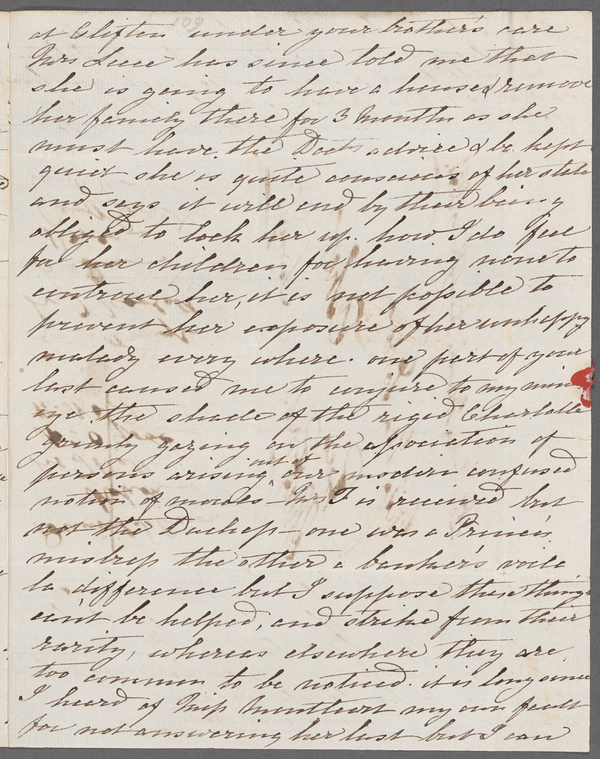 109
at Clifton under your brother's care
Mrs Luce has since told me that
she is going to have a house & remove
her family there for 3 Months as she
must have the Doctrs advice & be kept
quiet she is quite conscious of her state
and says it will end by their being
obliged to lock her up. how I do feel
for her children for having none to
controul her, it is not possible to
prevent her exposure of her unhappy
malady every where. one part of your
last caused me to conjure to my mind
eye the shade of the rigid Charlotte
grimly gazing on the association of
persons arising out of our modern confused
notion of morals - Mrs F is received but
not the Duchess - one was a Prince's
mistress the other a banker's voila
la difference but I suppose these things
can't be helped, and strike from their
rarity, whereas elsewhere they are
too common to be noticed. it is long since
I heard of Miss my own fault
for not answering her last but I can